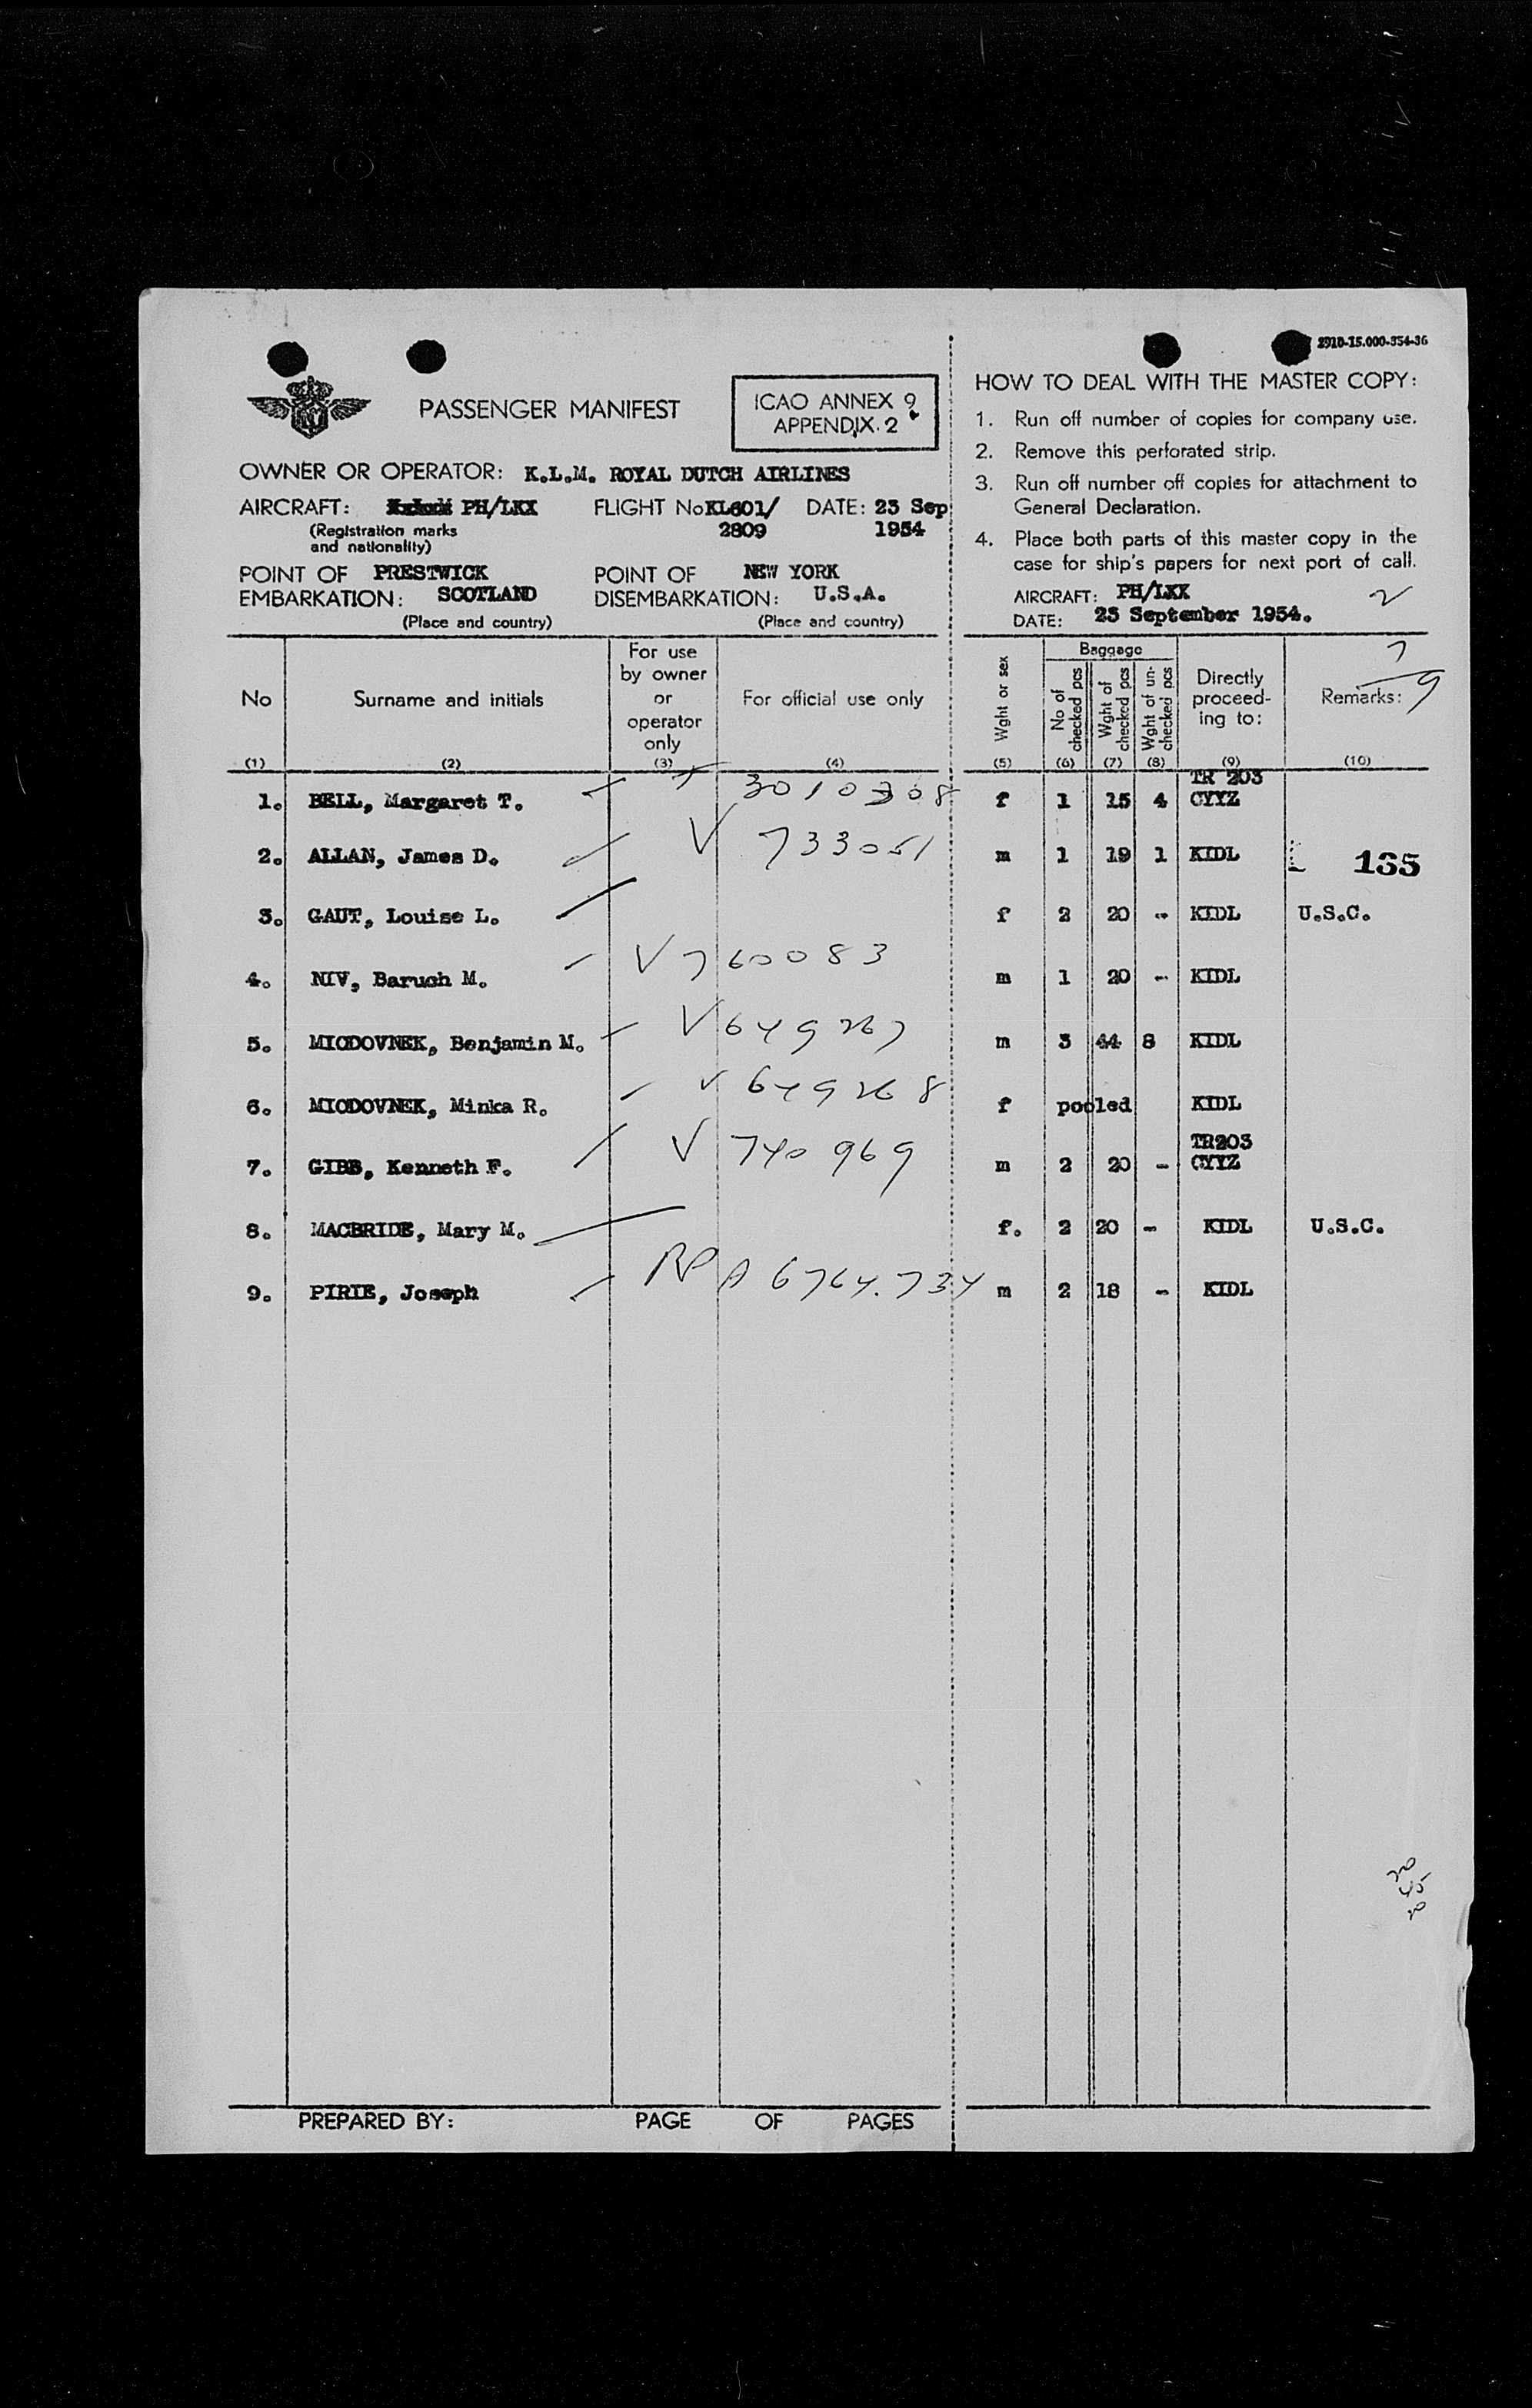 2910-15.000-354-36
PASSENGER MANIFEST
ICAO ANNEX 9
APPENDIX 2
OWNER OR OPERATOR: K.L.M. ROYAL DUTCH AIRLINES
AIRCRAFT: PH/LKX FLIGHT No KL601/ DATE: 23 Sep
(Registration marks 2809 1954
and nationality)
POINT OF PRESTWICK POINT OF NEW YORK
EMBARKATION: SCOTLAND DISEMBARKATION: U.S.A.
(Place and country) (Place and country)
HOW TO DEAL WITH THE MASTER COPY:
1. Run off number of copies for company use.
2. Remove this perforated strip.
3. Run off number off copies for attachment to
General Declaration.
4. Place both parts of this master copy in the
case for ship's papers for next port of call.
AIRCRAFT: PH/LKX
DATE: 23 September 1954.
2
7
9
No
Surname and initials
For use
by owner
or
operator
only
For official use only
Wght or sex
Baggage
No of
checked pcs
Wght of
checked pcs
Wght of un-
checked pcs
Directly
proceed-
ing to:
Remarks:
(1) (2) (3) (4) (5) (6) (7) (8) (9) (10)
TR 203
1. BELL, Margaret T. 3010308 f 1 15 4 CYYZ
2. ALLAN, James D. V 733051 m 1 19 1 KIDL 135
3. GAUT, Louise L. f 2 20 - KIDL U.S.C.
4. NIV, Baruch M. V 760083 m 1 20 - KIDL
5. MIODOVNEK, Benjamin M. V 649267 m 3 44 8 KIDL
6. MIODOVNEK, Minka R. V 649268 f pooled KIDL
TR203
7. GIBB, Kenneth F. V 740969 m 2 20 - CYYZ
8. MACBRIDE, Mary M. f. 2 20 - KIDL U.S.C.
9. PIRIE, Joseph RP A 6764.734 m 2 18 - KIDL
20
45
20
PREPARED BY: PAGE OF PAGES